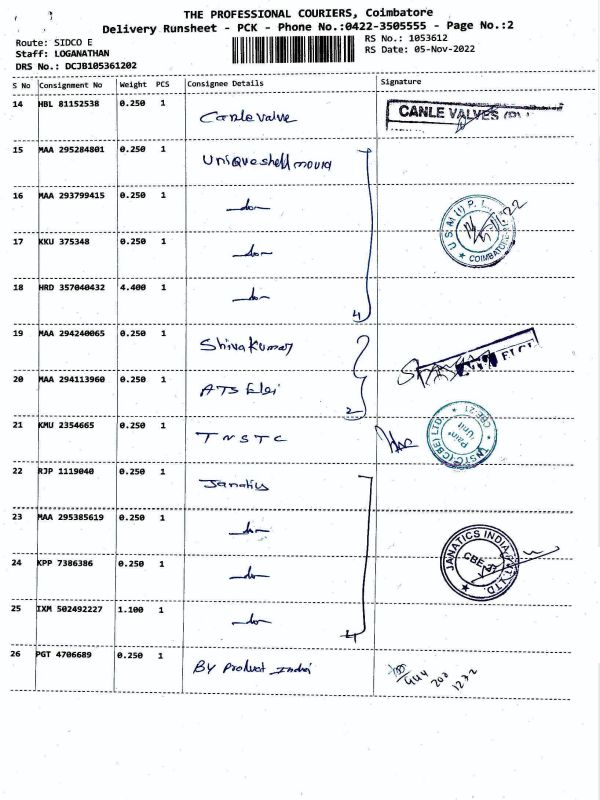 THE PROFESSIONAL COURIERS, Coimbatore
Delivery Runsheet - PCK - Phone No.:0422-3505555 - Page No.:2
Route: SIDCO E
Staff: LOGANATHAN
DRS No.: DCJB105361202
RS No.: 1053612
RS Date: 05-Nov-2022
S No Consignment No Weight PCS Consignee Details Signature
14 HBL 81152538 0.250 1 Canle valve CANLE VALVES
15 MAA 295284801 0.250 1 Unique shell mould
16 MAA 293799415 0.250 1 -do- U.S.M (I) P. L. COIMBATORE
17 KKU 375348 0.250 1 -do-
18 HRD 357040432 4.400 1 -do-
4
19 MAA 294240065 0.250 1 Shiva Kumar
20 MAA 294113960 0.250 1 ATS Elei
2
21 KMU 2354665 0.250 1 TNSTC TNSTC (CBE) LTD. CBE-21 Unit
22 RJP 1119040 0.250 1 Janatics
23 MAA 295385619 0.250 1 -do- JANATICS INDIA PVT LTD.
24 KPP 7386386 0.250 1 -do- CBE
25 IXM 502492227 1.100 1 -do-
4
26 PGT 4706689 0.250 1 By Product India 944 200 1232